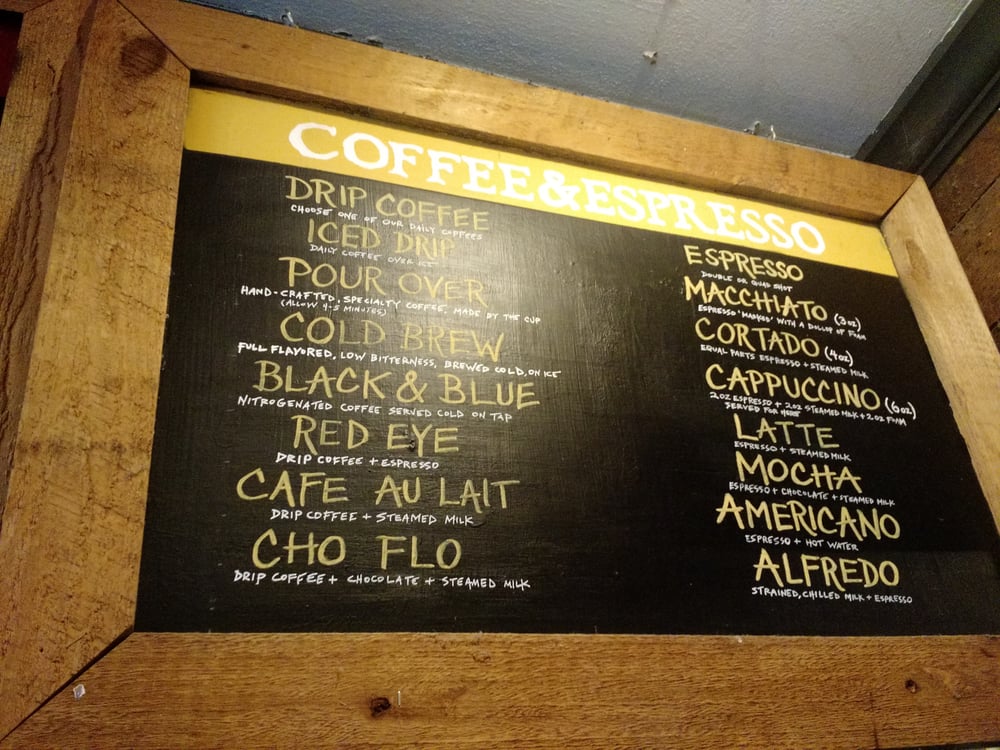 COFFEE & ESPRESSO
DRIP COFFEE
CHOOSE ONE OF OUR DAILY COFFEES
ICED DRIP
DAILY COFFEE OVER ICE
POUR OVER
HAND-CRAFTED, SPECIALTY COFFEE, MADE BY THE CUP
(ALLOW 4-5 MINUTES)
COLD BREW
FULL FLAVORED, LOW BITTERNESS, BREWED COLD, ON ICE
BLACK & BLUE
NITROGENATED COFFEE SERVED COLD ON TAP
RED EYE
DRIP COFFEE + ESPRESSO
CAFE AU LAIT
DRIP COFFEE + STEAMED MILK
CHO FLO
DRIP COFFEE + CHOCOLATE + STEAMED MILK
ESPRESSO
DOUBLE OR QUAD SHOT
MACCHIATO (3oz)
ESPRESSO 'MARKED' WITH A DOLLOP OF FOAM
CORTADO (4oz)
EQUAL PARTS ESPRESSO + STEAMED MILK
CAPPUCCINO (6oz)
2OZ ESPRESSO + 2OZ STEAMED MILK + 2OZ FOAM
SERVED FOR HERE
LATTE
ESPRESSO + STEAMED MILK
MOCHA
ESPRESSO + CHOCOLATE + STEAMED MILK
AMERICANO
ESPRESSO + HOT WATER
ALFREDO
STRAINED, CHILLED MILK + ESPRESSO